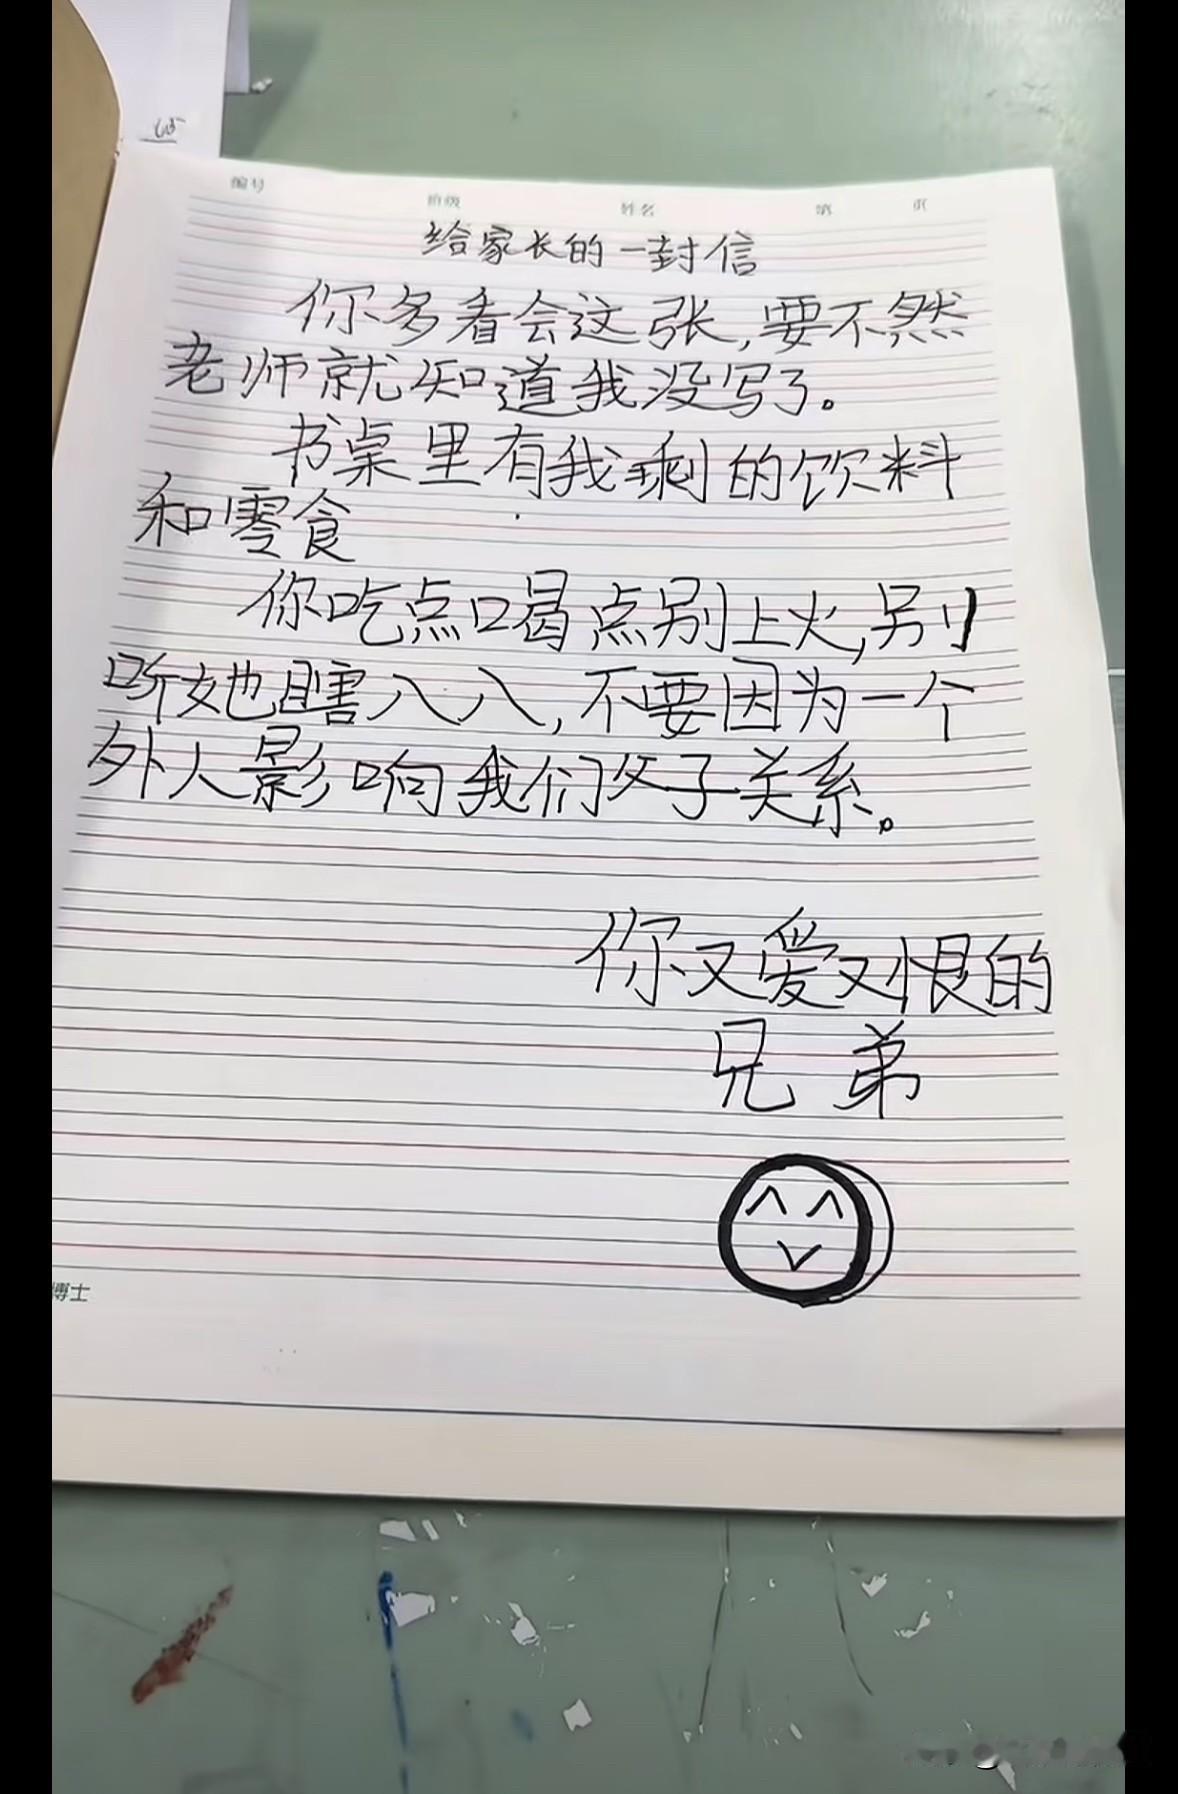 编号 班级 姓名 第 页
给家长的一封信
你多看会这张,要不然
老师就知道我没写了。
书桌里有我剩的饮料
和零食
你吃点喝点别上火,别
听她瞎八八,不要因为一个
外人影响我们父子关系。
你又爱又恨的
兄弟
博士